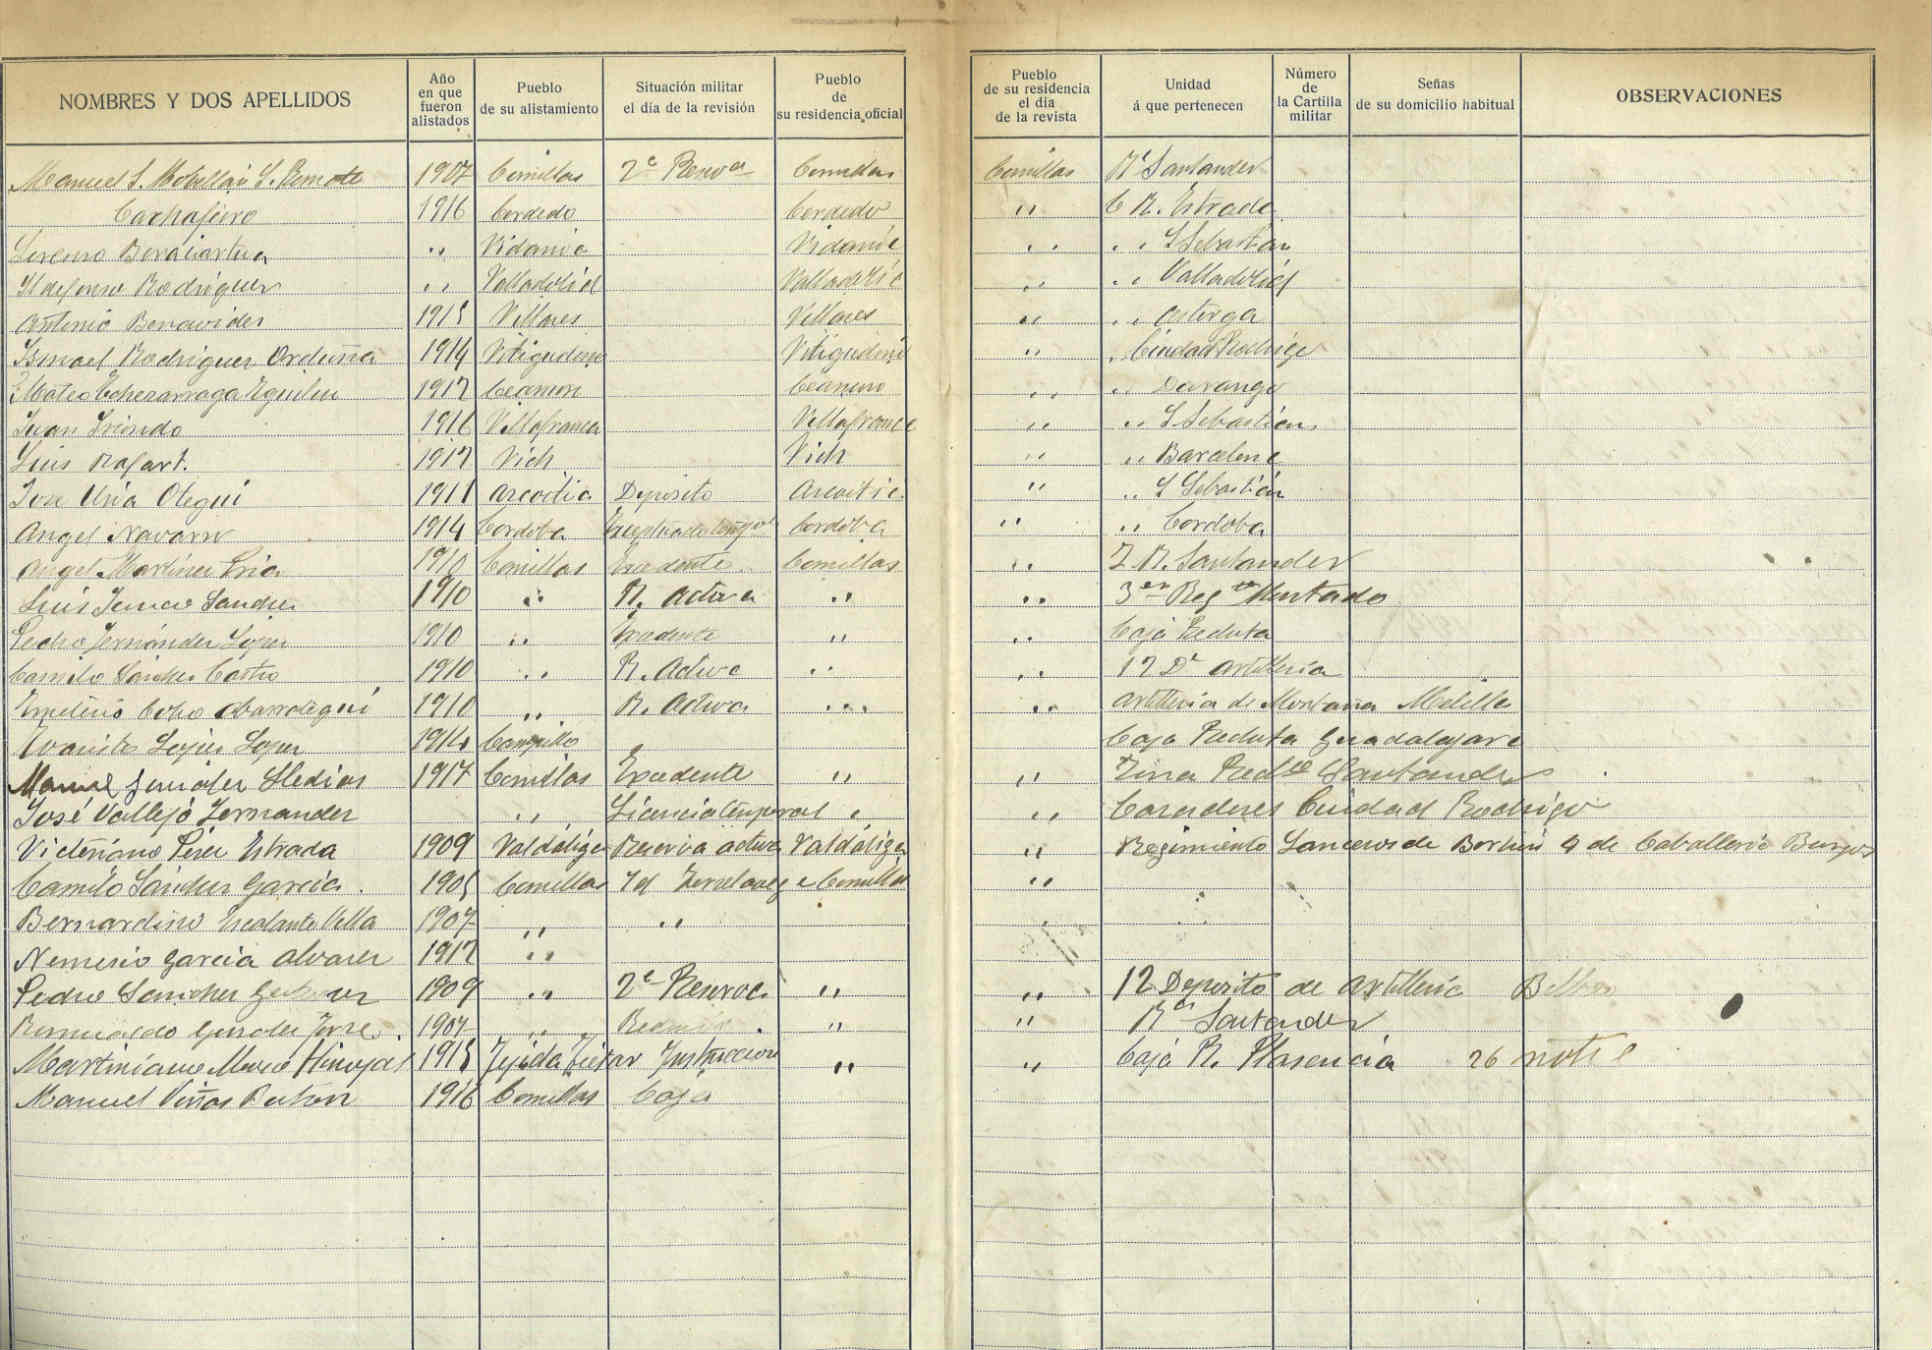 NOMBRES Y DOS APELLIDOS Año en que fueron alistados Pueblo de su alistamiento Situación militar el día de la revisión Pueblo de su residencia oficial Pueblo de su residencia el dia de la revista Unidad á que pertenecen Número de la Cartilla militar Señas de su domicilio habitual OBSERVACIONES
Manuel S. 1907 Comillas 2ª Comillas Comillas Rª Santander
Carhajeiro 1916 Cerdedo Cerdedo " C R. Estrada
Lorenzo 〃 Vidania Vidania " " S Sebastian
Ildefonso Rodriguez " Valladolid Valladolid " " Valladolid
Antonio Benavides 1915 Villares Villares " " Astorga
Ismael Rodriguez Orduña 1914 Vitigudino Vitigudino " " Ciudad Rodrigo
Mateo Echezarraga 1917 " " Durango
Juan Iriondo 1916 Villafranca Villafranca " " S Sebastián
Luis Rafart. 1917 Vich Vich " " Barcelona
Jose Uria Olegui 1911 Azcoitia Deposito Azcoitia " " S Sebastián
Angel Navarro 1914 Cordoba Cordoba " " Cordoba
Angel Martinez 1910 Comillas Excedente Comillas " Z R. Santander
Luis Sanchez 1910 " R. Activa " " 3er Reg Montado
Pedro Fernández Lopez 1910 " Excedente " " Caja Recluta
Camilo Sánchez Castro 1910 " R. Activa " " 12 Dº Artilleria
Cobo 1910 " R. Activa " " Artilleria de Montaña Melilla
Lopez Lopez 1914 Caja Recluta Guadalajara
Manuel Gonzalez 1917 Comillas Excedente " " Zona Santander
José Vallejo Fernandez " Licencia temporal " " Cazadores Ciudad Rodrigo
Victoriano Perez Estrada 1909 Valdáliga Reserva activa Valdáliga " Regimiento Lanceros de 4 de Caballeria Burgos
Camilo Sánchez Garcia. 1905 Comillas Id Comillas "
Bernardino Escalante Villa 1907 " "
Nemesio Garcia Alvarez 1917 "
Pedro Sanchez 1909 " 2ª Reserva " " 12 Deposito de Artilleria Bilbao
Romualdo 1907 " " " Rª Santander
Martiniano 1915 Tejeda Tietar Instruccion " " Caja R. Plasencia 26
Manuel Viñas 1916 Comillas Caja